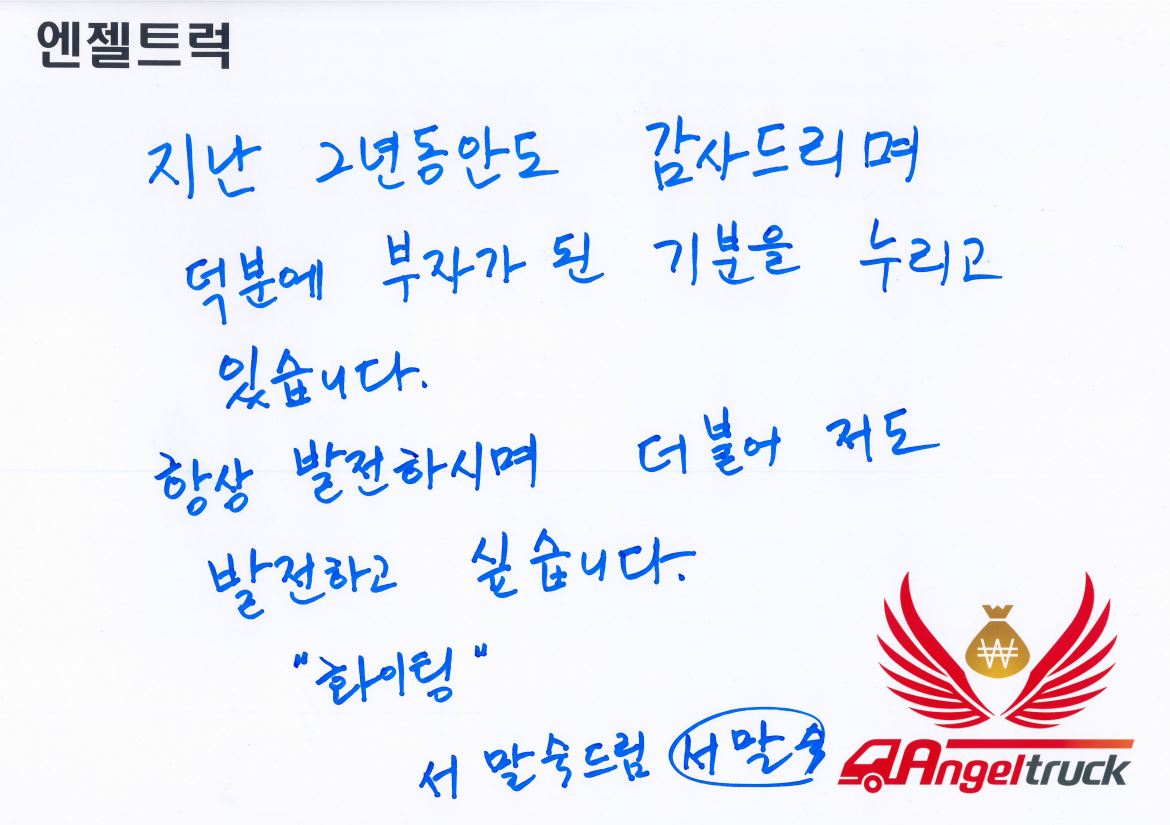 엔젤트럭
지난 2년동안도 감사드리며
덕분에 부자가 된 기분을 누리고
있습니다.
항상 발전하시며 더불어 저도
발전하고 싶습니다.
"화이팅"
서말숙드림 서말숙
₩
Angeltruck